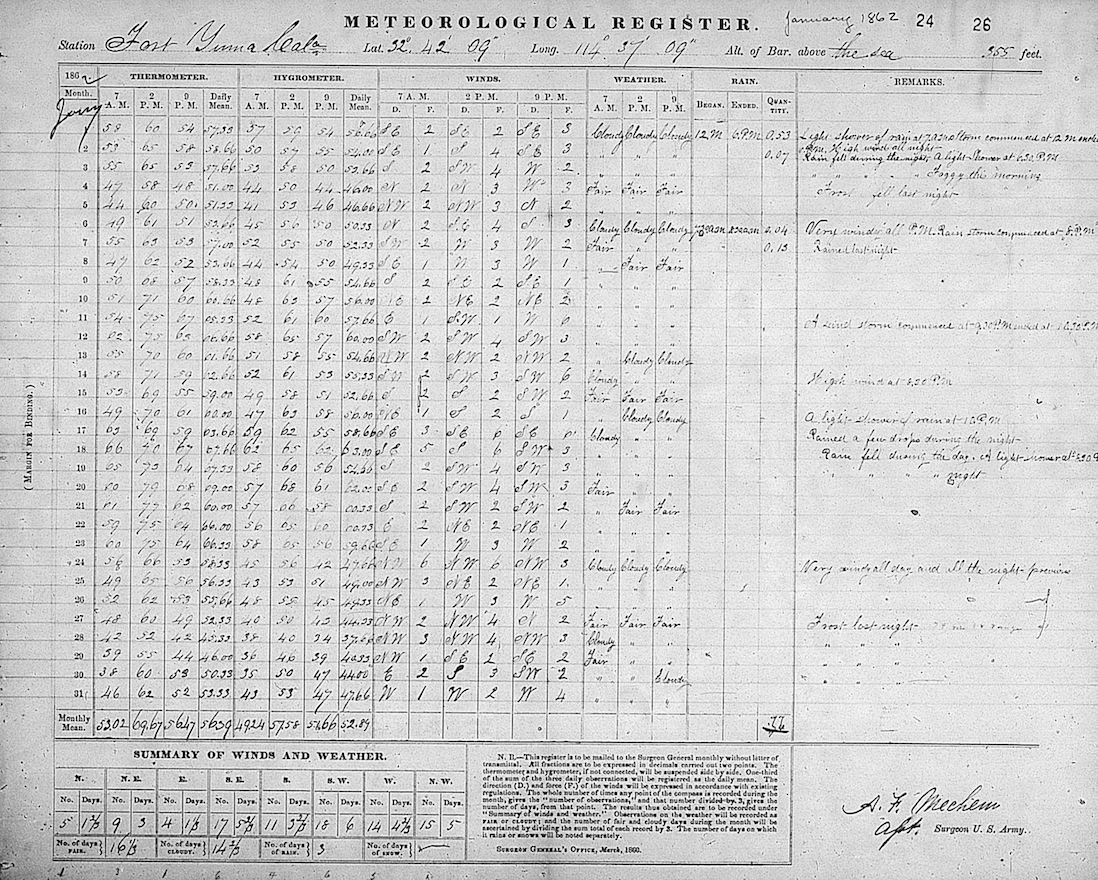 METEOROLOGICAL REGISTER. January 1862 24 26
Station Fort Yuma Cala Lat. 32° 42' 09" Long. 114° 37' 09" Alt. of Bar. above the sea 355 feet.
1862 THERMOMETER. HYGROMETER. WINDS. WEATHER. RAIN. REMARKS.
Month. 7 A. M. 2 P. M. 9 P. M. Daily Mean. 7 A. M. 2 P. M. 9 P. M. Daily Mean. 7 A M. 2 P M. 9 P M. 7 A. M. 2 P. M. 9 P. M. BEGAN. ENDED. QUANTITY.
D. F. D. F. D. F.
Jany
58 60 54 57.33 57 50 54 S E 2 S E 2 S E 3 Cloudy Cloudy Cloudy 12 M 6 P.M 0.53 Light shower of rain at 7 A M
2 53 65 58 58.66 50 57 55 54.00 S E 1 S 4 S E 3 " " " 0.07 High wind all night
3 55 65 53 57.66 53 58 50 53.66 S 2 S W 4 W 2 " " " Rain fell during the night. A light shower at 6.30 P.M
4 47 58 48 51.00 44 50 44 46.00 N 2 N 3 W 3 Fair Fair Fair Foggy the morning
5 44 60 50 51.33 41 53 46 46.66 N W 2 N W 3 N 2 " " " Frost fell last night
6 49 61 51 53.66 45 56 50 50.33 N 2 S E 4 S 3 Cloudy Cloudy Cloudy 0.04 Very windy all P.M. Rain storm commenced at 8 P.M
7 55 63 53 57.00 52 55 50 52.33 S W 2 W 3 W 2 Fair " " 0.13 Rained last night
8 47 62 52 53.66 44 54 50 49.33 S E 1 W 3 W 1 " Fair Fair
9 50 68 57 58.33 48 61 55 54.66 S 2 S E 2 S E 1 " " "
10 51 71 60 60.66 48 63 57 56.00 N E 2 N E 2 N E 2 " " "
11 54 75 67 65.33 52 61 60 57.66 E 1 S W 1 W 6 " " "
12 62 75 63 66.66 58 65 57 60.00 S W 2 S W 4 S W 3 " " "
13 55 70 60 61.66 51 58 55 54.66 N W 2 N W 2 N W 2 " Cloudy Cloudy
14 58 71 59 62.66 52 61 53 55.33 S W 2 S W 3 S W 6 Cloudy " " High wind at 8.30 P.M
15 53 69 55 59.00 49 58 51 52.66 S 2 S 2 S W 2 Fair Fair Fair
16 49 70 61 60.00 47 63 58 56.00 N E 1 S 2 S 1 " Cloudy Cloudy A light shower of rain at 12 P.M
17 63 69 59 63.66 59 62 55 58.66 S E 3 S E 6 S E Cloudy " " Rained a few drops during the night
18 66 70 67 67.66 62 65 62 63.00 S E 5 S 6 S W 3 " " " Rain fell during the day. A light shower at 8.30 P
19 65 73 64 67.33 58 60 56 S 2 S W 4 S W 3 " " " " " " night
20 60 79 68 69.00 57 68 61 62.00 S E 2 S W 4 S W 3 Fair " "
21 61 77 62 57 66 58 60.33 S W 2 S W 2 S W 2 " Fair Fair
22 59 75 64 66.00 56 65 60 60.33 E 2 N E 2 N E 1 " " "
23 60 75 64 66.33 58 65 56 59.66 S E 1 W 3 W 2 " " "
24 56 66 53 58.33 45 56 42 47.66 N W 6 N W 6 N W 3 Cloudy Cloudy Cloudy Very windy all day and all the night previous
25 49 65 56 56.33 43 53 51 49.00 N W 3 N E 2 N E 1 " " "
26 52 62 53 55.66 48 55 45 49.33 N E 1 W 3 W 5 " " "
27 48 60 49 52.33 40 50 43 44.33 N W 2 N W 4 N 2 Fair Fair Fair Frost last night
28 42 52 42 45.33 38 40 34 37.33 N W 3 N W 4 N W 3 Cloudy " " " " "
29 39 55 44 46.00 36 46 39 40.33 N W 1 S E 2 S E 2 Fair " " " " "
30 38 60 53 50.33 35 50 47 44.00 E 2 S 3 S W 2 " " Cloudy " " "
31 46 62 52 53.33 43 53 47 47.66 W 1 W 2 W 4 " " "
Monthly Mean. 53.02 69.67 56.47 56.39 49.24 57.58 51.66 52.89 .77
( MARGIN FOR BINDING. )
SUMMARY OF WINDS AND WEATHER.
N. N. E. E. S. E. S. S. W. W. N. W.
No. Days. No. Days. No. Days. No. Days. No. Days. No. Days. No. Days. No. Days.
5 1 2/3 9 3 4 1 1/3 17 5 2/3 11 3 2/3 18 6 14 4 2/3 15 5
No. of days FAIR. 16 1/3 No. of days CLOUDY. 14 2/3 No. of days of RAIN. 3 No. of days of SNOW.
N. B.—This register is to be mailed to the Surgeon General monthly without letter of
transmittal. All fractions are to be expressed in decimals carried out two points. The
thermometer and hygrometer, if not connected, will be suspended side by side. One-third
of the sum of the three daily observations will be registered as the daily mean. The
direction (D.) and force (F.) of the winds will be expressed in accordance with existing
regulations. The whole number of times any point of the compass is recorded during the
month, gives the "number of observations," and that number divided by 3, gives the
number of days, from that point. The results thus obtained are to be recorded under
"Summary of winds and weather." Observations on the weather will be recorded as
FAIR or CLOUDY; and the number of fair and cloudy days during the month will be
ascertained by dividing the sum total of each record by 3. The number of days on which
it rains or snows will be noted separately.
SURGEON GENERAL'S OFFICE, March, 1860.
A. F. Mechem
Asst. Surgeon U. S. Army.